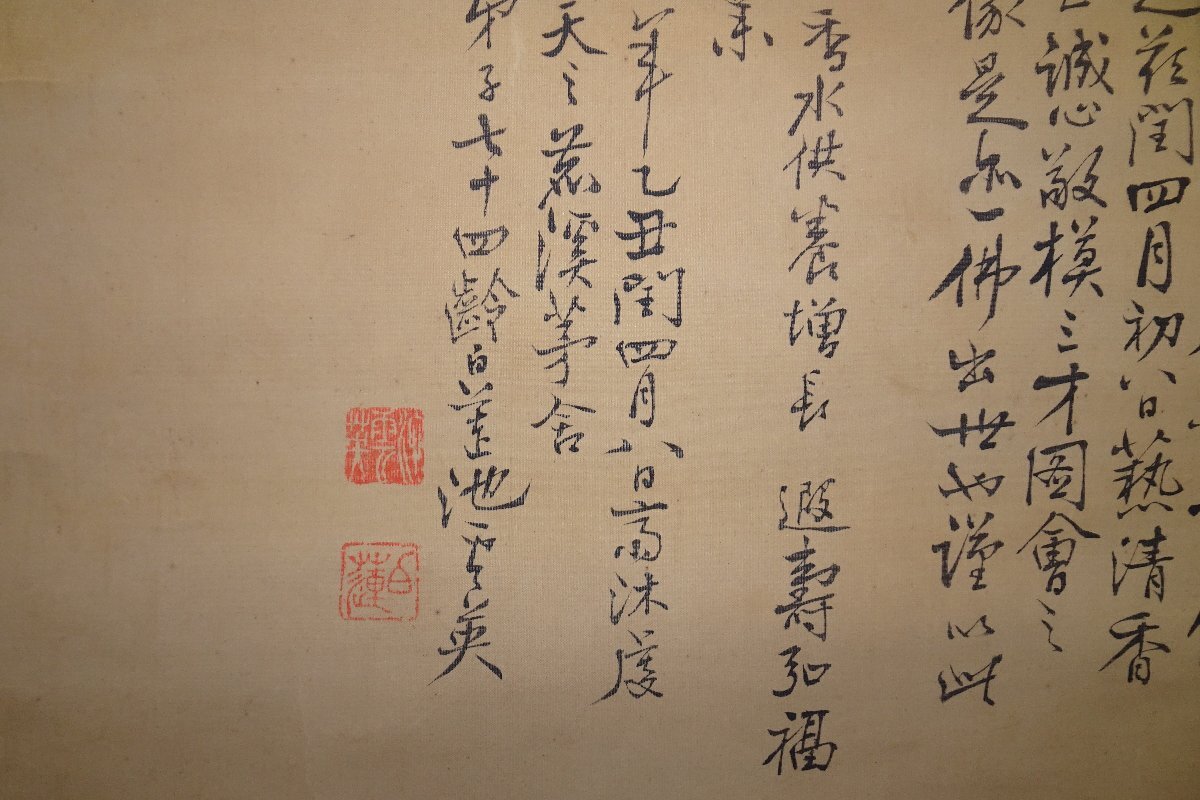 花閏四月初八日爇清香
誠心敬模三才圖會之
像是亦一佛出世也謹以此
香水供養增長 遐壽弘福
未
年乙丑閏四月八日斎沐虔
天之荒溪茅舍
弟子七十四齡白蓮池雲英
淳雲英
白蓮